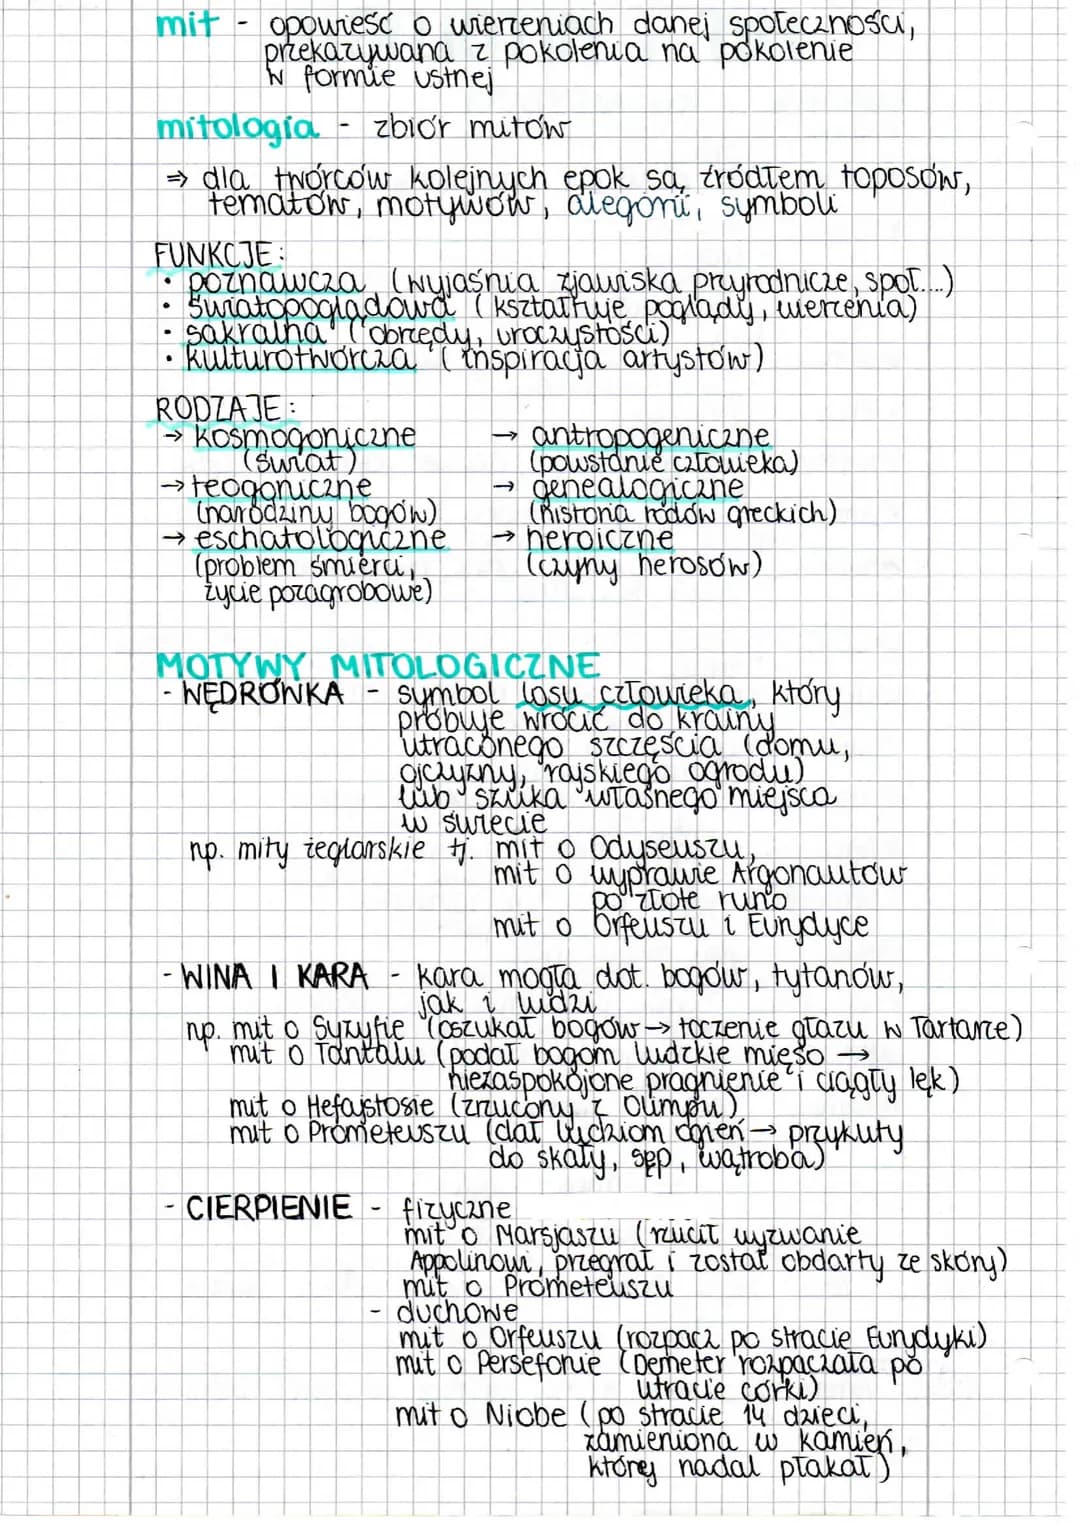 mit - opowieść o wierzeniach danej społeczności,
przekazywana z pokolenia na pokolenie
w formie ustnej
mitologia - zbiór mitów
⇒ dla twórców kolejnych epok są źródłem toposów,
tematów, motywów, alegorii, symboli
FUNKCJE:
• poznawcza (wyjaśnia zjawiska przyrodnicze, społ....)
• światopoglądowa (kształtuje poglądy, wierzenia)
• sakralna (obrzędy, uroczystości)
• kulturotwórcza (inspiracja artystów)
RODZAJE:
→ kosmogoniczne
(świat)
→ teogoniczne
(narodziny bogów)
→ eschatologiczne
(problem śmierci,
życie pozagrobowe)
→ antropogeniczne
(powstanie człowieka)
→ genealogiczne
(historia rodów greckich)
→ heroiczne
(czyny herosów)
MOTYWY MITOLOGICZNE
- WĘDRÓWKA - symbol losu człowieka, który
próbuje wrócić do krainy
utraconego szczęścia (domu,
ojczyzny, rajskiego ogrodu)
lub szuka własnego miejsca
w świecie
np. mity żeglarskie tj. mit o Odyseuszu,
mit o wyprawie Argonautów
po złote runo
mit o Orfeuszu i Eurydyce
- WINA I KARA - kara mogła dot. bogów, tytanów,
jak i ludzi
np. mit o Syzyfie (oszukał bogów → toczenie głazu w Tartarze)
mit o Tantalu (podał bogom ludzkie mięso →
niezaspokojone pragnienie i ciągły lęk)
mit o Hefajstosie (zrzucony z Olimpu)
mit o Prometeuszu (dał ludziom ogień → przykuty
do skały, sęp, wątroba)
- CIERPIENIE - fizyczne
mit o Marsjaszu (rzucił wyzwanie
Appolinowi, przegrał i został obdarty ze skóry)
mit o Prometeuszu
- duchowe
mit o Orfeuszu (rozpacz po stracie Eurydyki)
mit o Persefonie (Demeter rozpaczała po
utracie córki)
mit o Niobe (po stracie 14 dzieci,
zamieniona w kamień,
który nadal płakał)